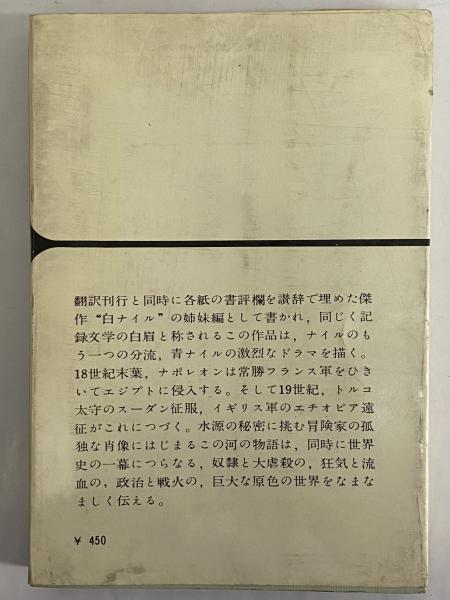 翻訳刊行と同時に各紙の書評欄を讃辞で埋めた傑
作“白ナイル”の姉妹編として書かれ，同じく記
録文学の白眉と称されるこの作品は，ナイルのも
う一つの分流，青ナイルの激烈なドラマを描く。
18世紀末葉，ナポレオンは常勝フランス軍をひき
いてエジプトに侵入する。そして19世紀，トルコ
太守のスーダン征服，イギリス軍のエチオピア遠
征がこれにつづく。水源の秘密に挑む冒険家の孤
独な肖像にはじまるこの河の物語は，同時に世界
史の一幕につらなる，奴隷と大虐殺の，狂気と流
血の，政治と戦火の，巨大な原色の世界をなまな
ましく伝える。
¥ 450